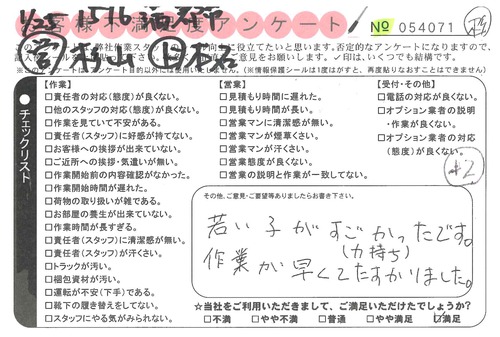 お客様不満足度アンケート
№ 054071
1/25 1516
このアンケートは、弊社作業スタッフの
役立てたいと思います。否定的なアンケートになりますので、
ご意見をお願いします。✓印は、いくつでも結構です。
※このアンケートは
目的以外には使用いたしません。(※情報保護シールは1度はがすと、再度貼りなおすことはできません)
チェックリスト
【作業】
□責任者の対応(態度)が良くない。
□他のスタッフの対応(態度)が良くない。
□作業を見ていて不安がある。
□責任者(スタッフ)に好感が持てない。
□お客様への挨拶が出来ていない。
□ご近所への挨拶・気遣いが無い。
□作業開始前の内容確認がなかった。
□作業開始時間が遅れた。
□荷物の取り扱いが雑である。
□お部屋の養生が出来ていない。
□作業時間が長すぎる。
□責任者(スタッフ)に清潔感が無い。
□責任者(スタッフ)が汗くさい。
□トラックが汚い。
□梱包資材が汚い。
□運転が不安(下手)である。
□靴下の履き替えをしてない。
□スタッフにやる気がみられない。
【営業】
□見積もり時間に遅れた。
□見積もり時間が長い。
□営業マンに清潔感が無い。
□営業マンが煙草くさい。
□営業マンが汗くさい。
□営業態度が良くない。
□営業の説明と作業が一致してない。
【受付・その他】
□電話の対応が良くない。
□オプション業者の説明
・作業が良くない。
□オプション業者の対応
(態度)が良くない。
#2
その他、ご意見・ご要望等ありましたらお書き下さい。
若い子がすごかったです。
(力持ち)
作業が早くてたすかりました。
☆当社をご利用いただきまして、ご満足いただけたでしょうか?
□不満 □やや不満 □普通 □やや満足 ☑満足